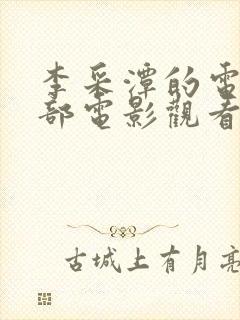 李采潭的電
部電影觀看
古城上有月亮